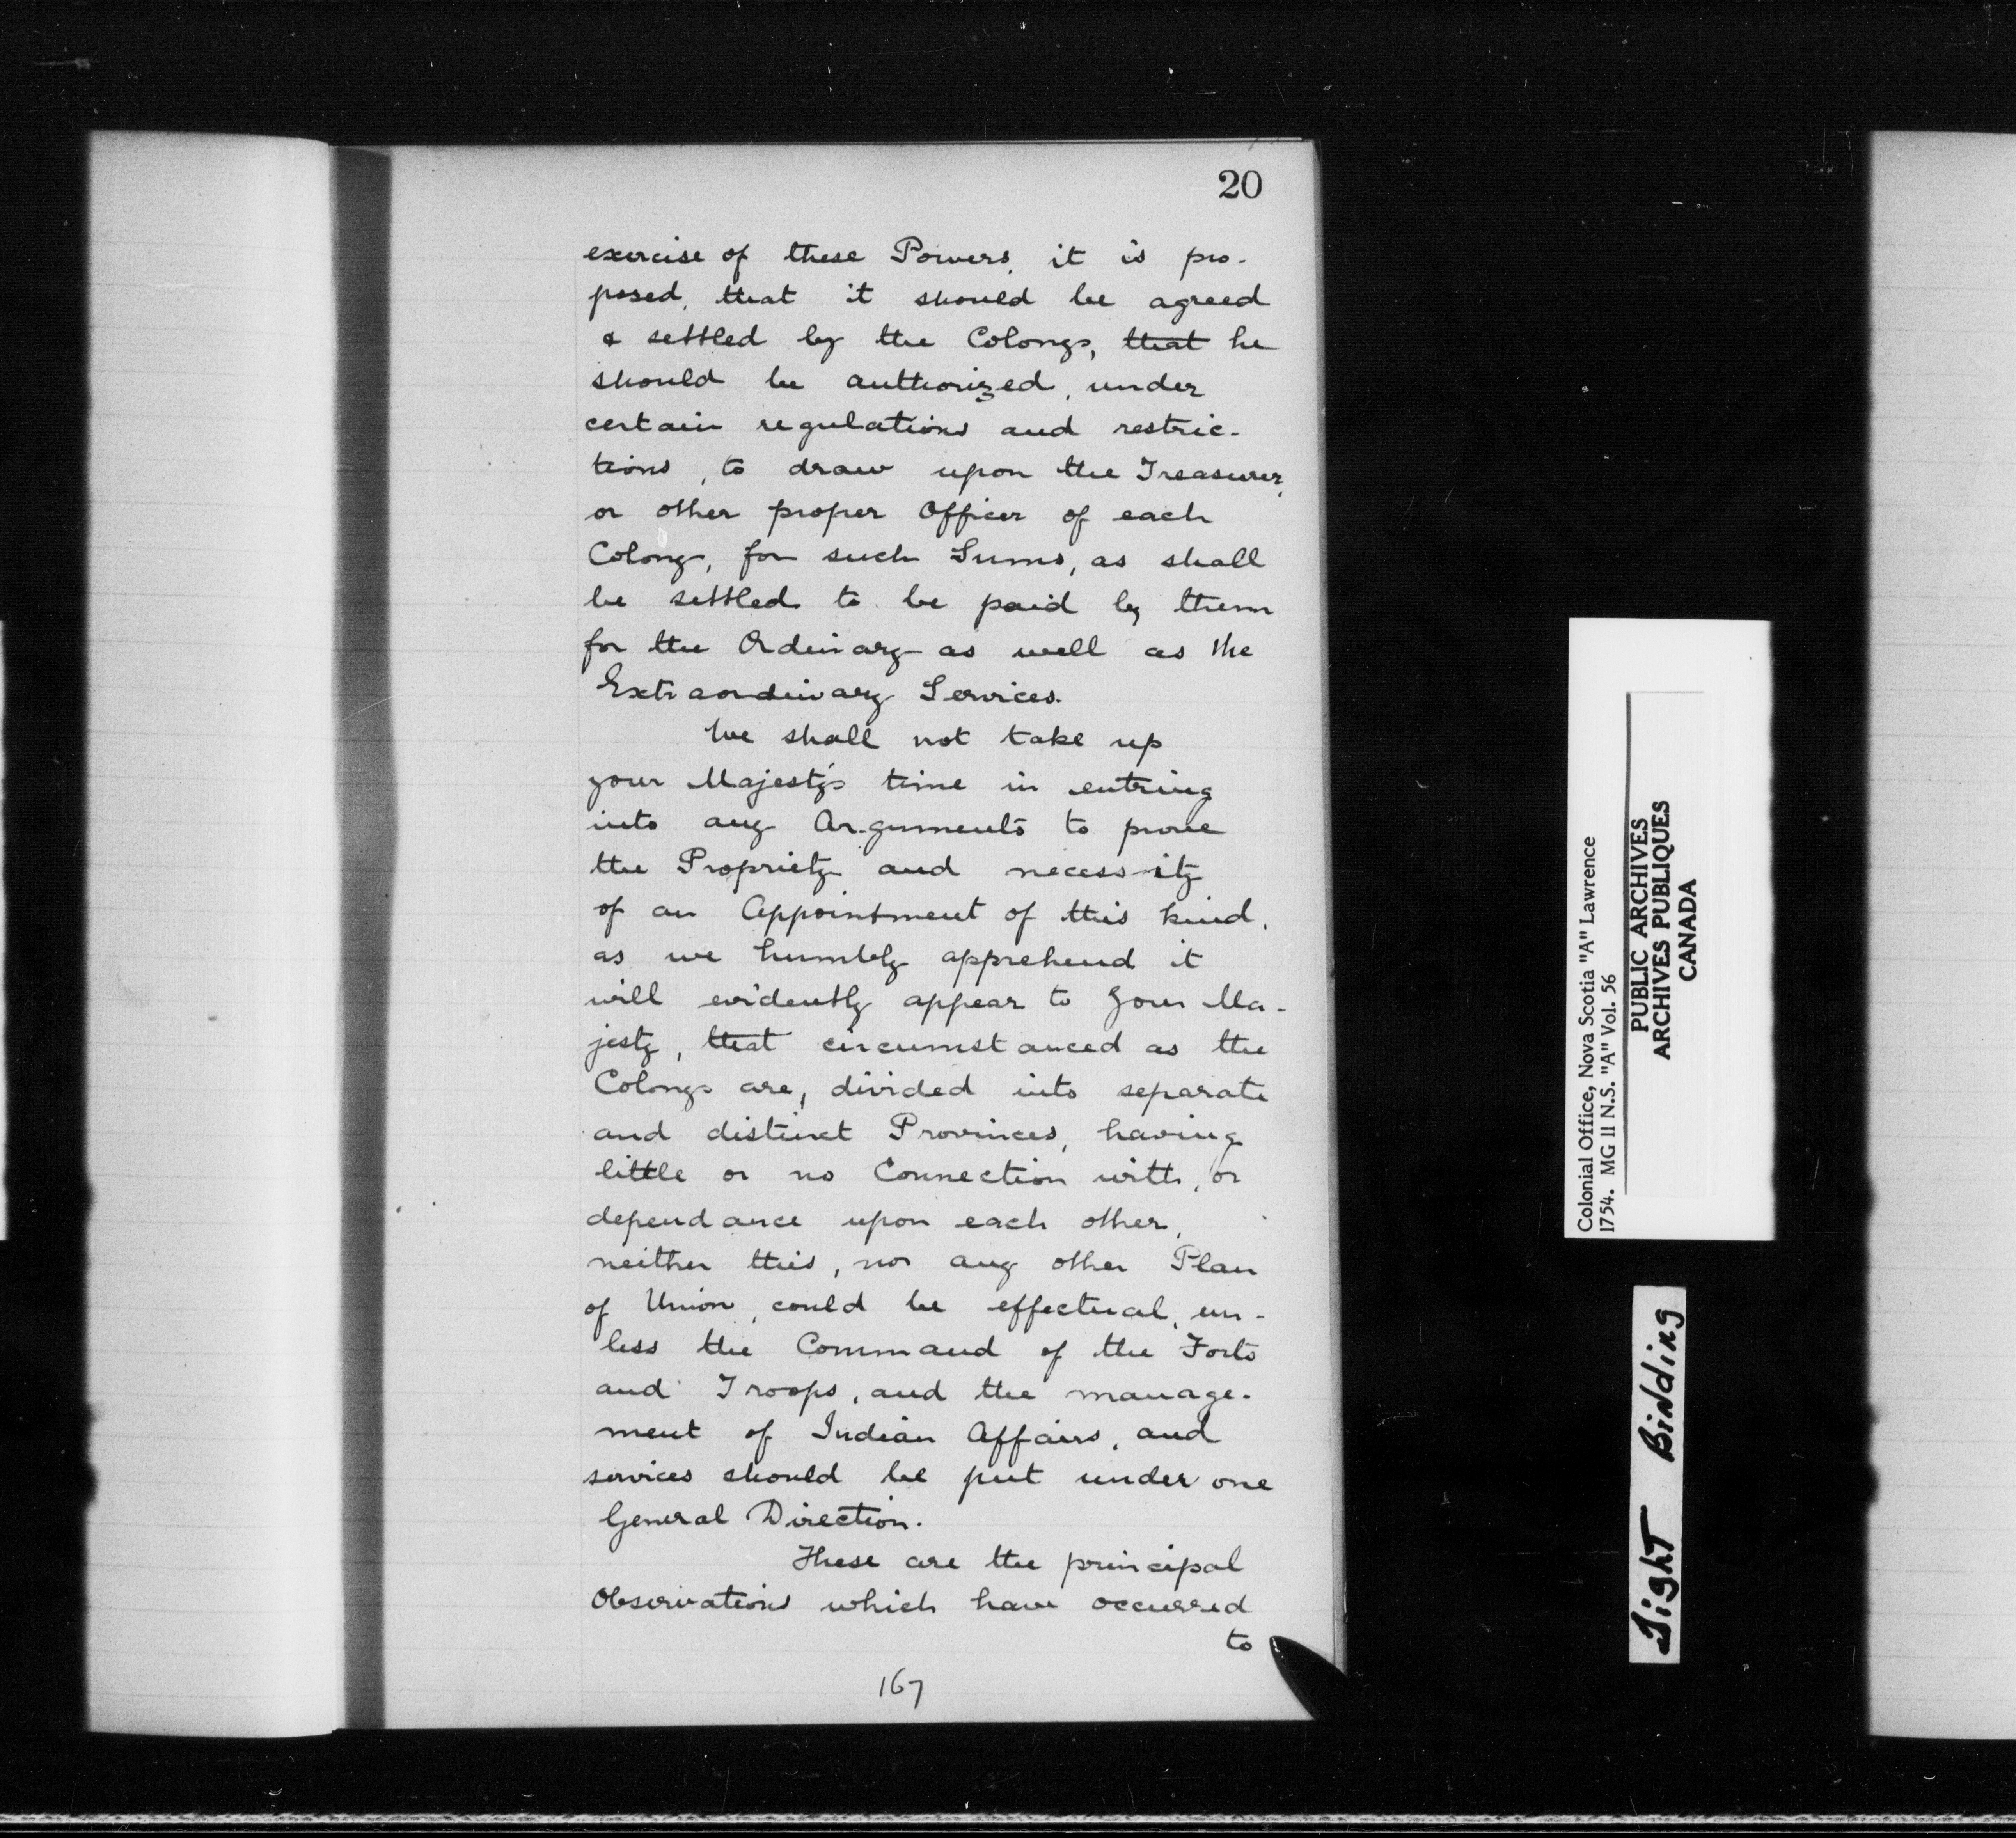 20
exercise of these Powers, it is pro-
posed, that it should be agreed
& settled by the Colonys, that he
should be authorized, under
certain regulations and restric-
tions, to draw upon the Treasurer,
or other proper Officer of each
Colony, for such Sums, as shall
be settled to be paid by them
for the Ordinary as well as the
Extraordinary Services.
We shall not take up
your Majesty's time in entring
into any Arguments to prove
the Propriety and necessity
of an Appointment of this kind,
as we humbly apprehend it
will evidently appear to Your Ma-
jesty, that circumstanced as the
Colonys are, divided into separate
and distinct Provinces, having
little or no Connection with, or
dependance upon each other,
neither this, nor any other Plan
of Union, could be effectual, un-
less the Command of the Forts
and Troops, and the manage-
ment of Indian Affairs, and
services should be put under one
General Direction.
These are the principal
Observations which have occurred
to
167
Colonial Office, Nova Scotia "A" Lawrence
1754. MG 11 N.S. "A" Vol. 56
PUBLIC ARCHIVES
ARCHIVES PUBLIQUES
CANADA
Tight Binding